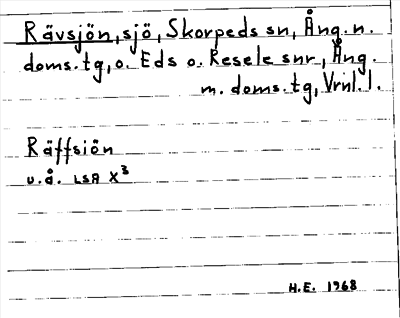 Rävsjön, sjö, Skorpeds sn, Ång. n.
doms.tg, o. Eds o. Resele snr, Ång.
m. doms.tg, Vrnl. l.
Räffsiön
u.å. LSA X³
H.E. 1968